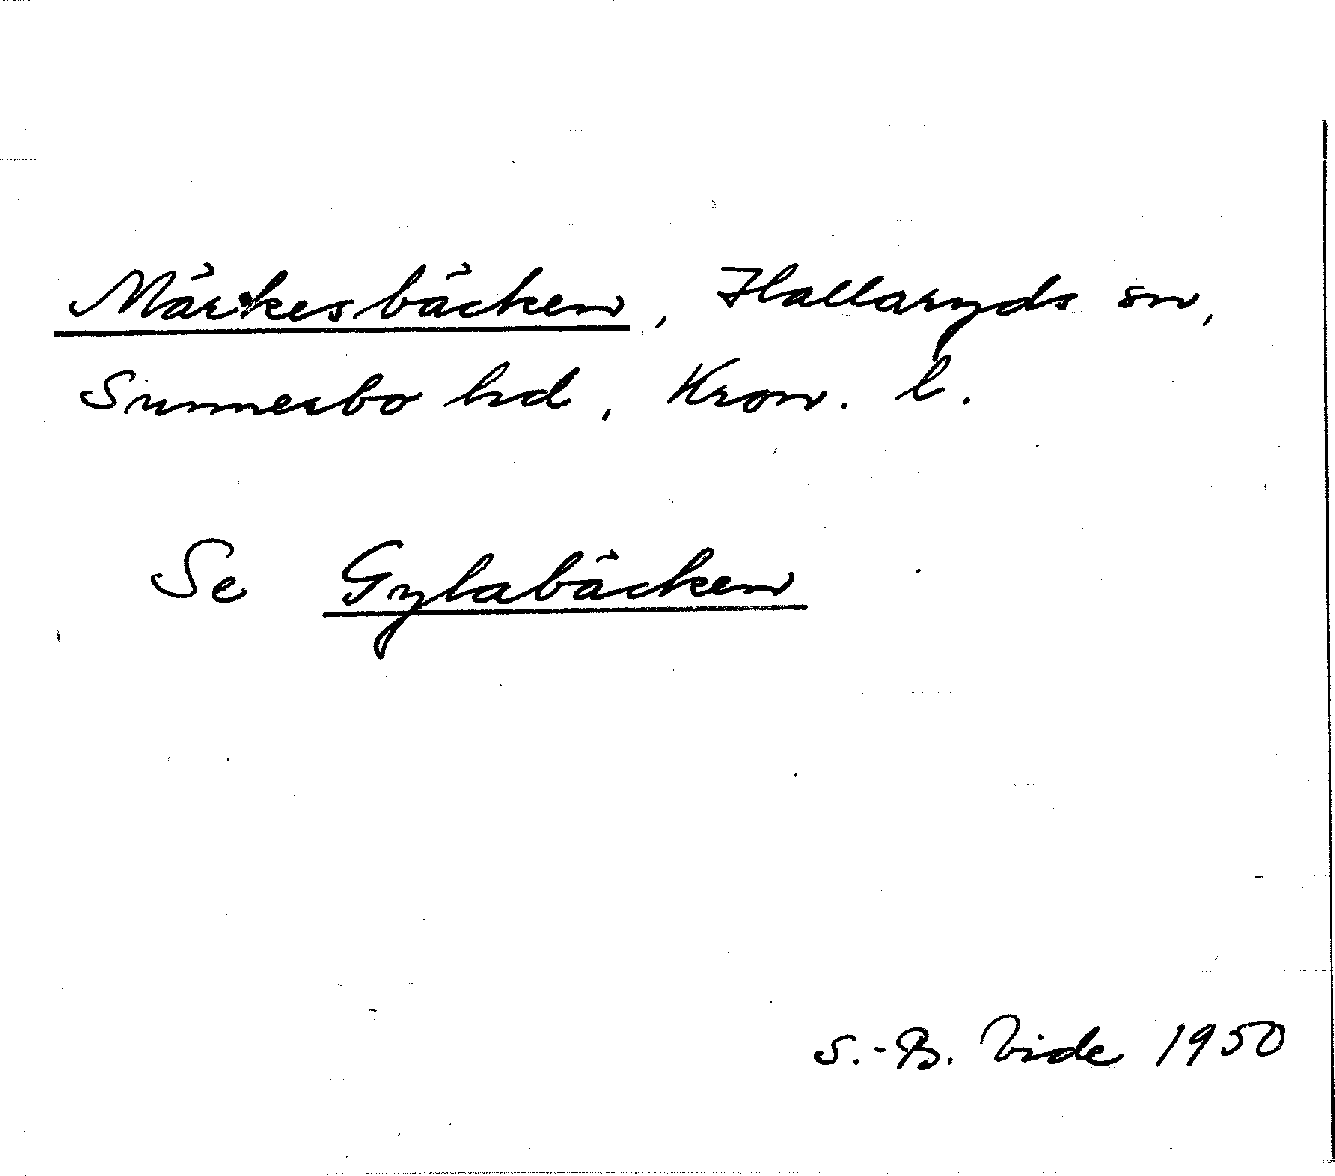 Märkesbäcken, Hallaryds sn,
Sunnerbo hd, Kron. l.
Se Gylabäcken
S.-B. Vide 1950